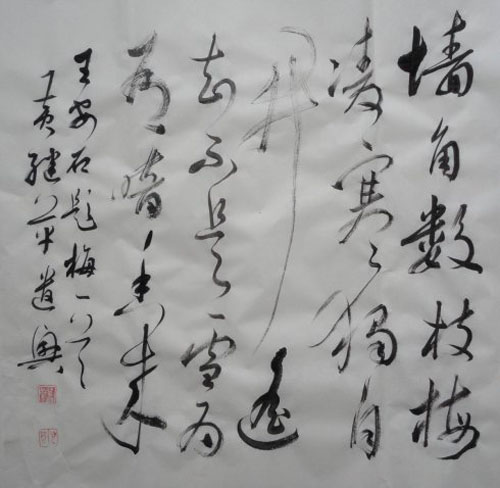 墙角数枝梅
凌寒独自
开遥
知不是雪为
有暗香来
王安石题梅一首
继平遣兴